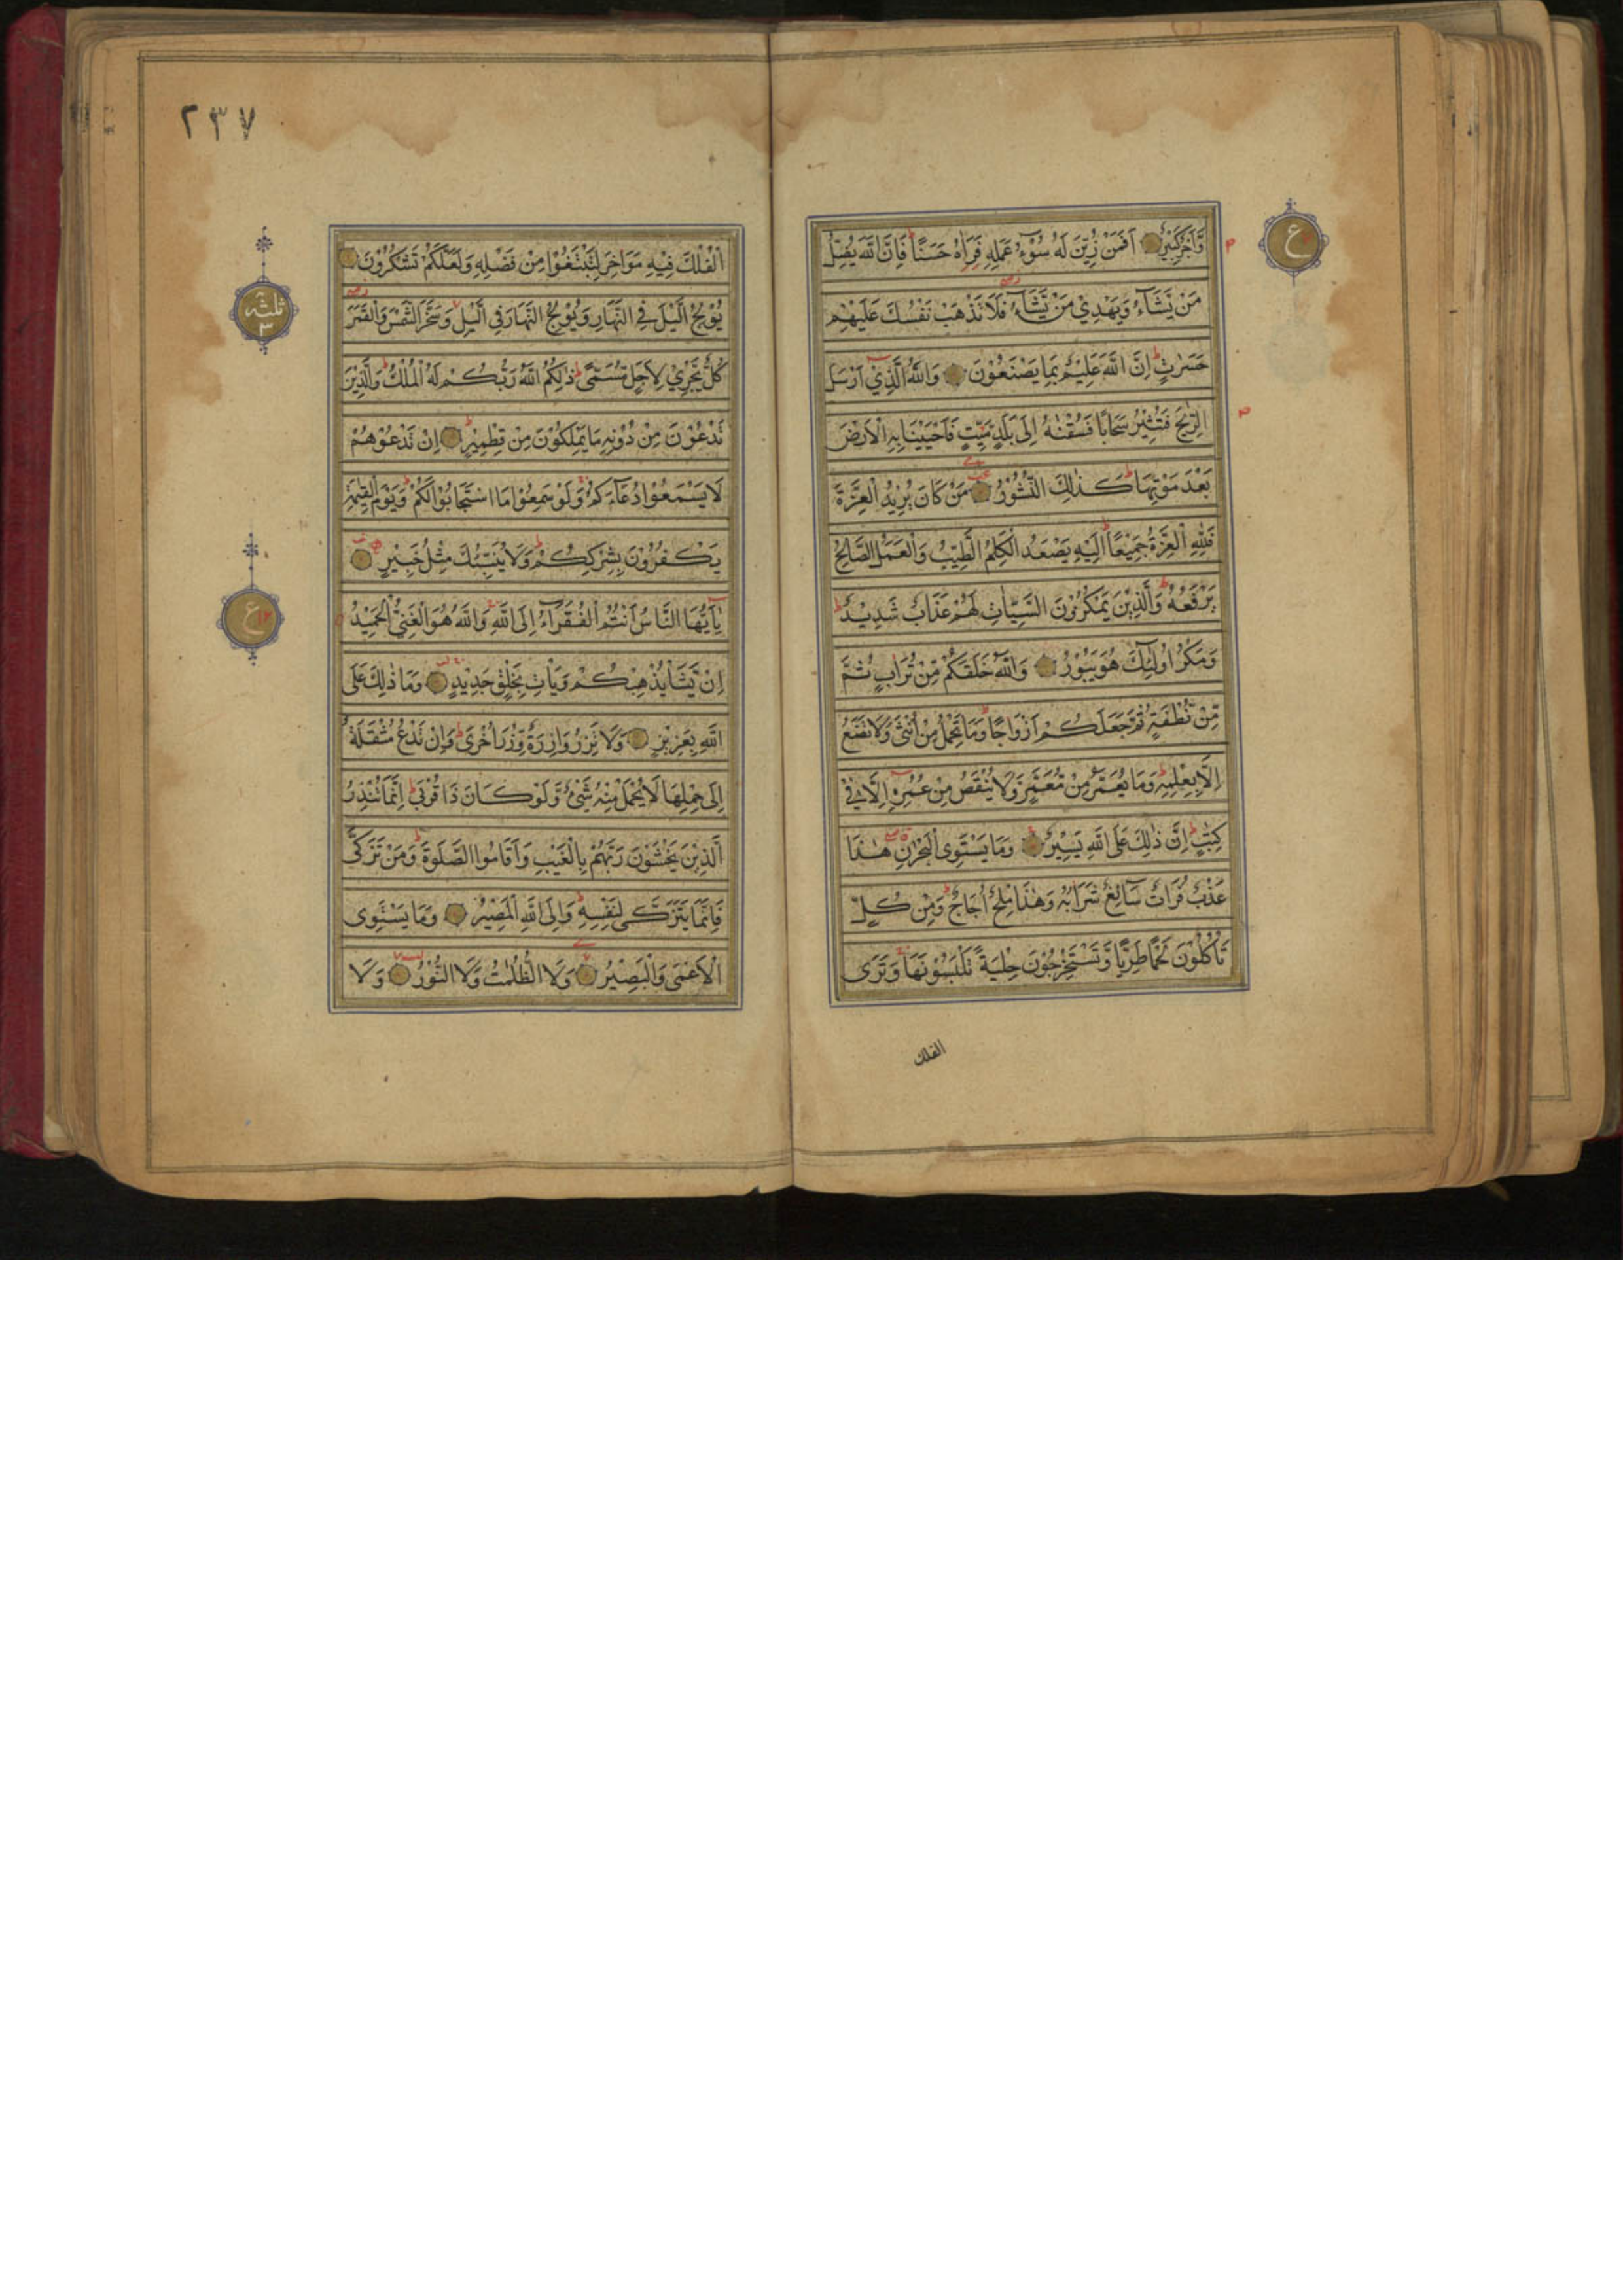 وَّاَجْرٌ كَبِيْرٌ اَفَمَنْ زُيِّنَ لَهٗ سُوْٓءُ عَمَلِهٖ فَرَاٰهُ حَسَنًا ط فَاِنَّ اللّٰهَ يُضِلُّ
مَنْ يَّشَآءُ وَيَهْدِيْ مَنْ يَّشَآءُ فَلَا تَذْهَبْ نَفْسُكَ عَلَيْهِمْ
حَسَرٰتٍ ط اِنَّ اللّٰهَ عَلِيْمٌ بِمَا يَصْنَعُوْنَ وَاللّٰهُ الَّذِيْٓ اَرْسَلَ
الرِّيٰحَ فَتُثِيْرُ سَحَابًا فَسُقْنٰهُ اِلٰى بَلَدٍ مَّيِّتٍ فَاَحْيَيْنَا بِهِ الْاَرْضَ
بَعْدَ مَوْتِهَا ط كَذٰلِكَ النُّشُوْرُ مَنْ كَانَ يُرِيْدُ الْعِزَّةَ
فَلِلّٰهِ الْعِزَّةُ جَمِيْعًا ط اِلَيْهِ يَصْعَدُ الْكَلِمُ الطَّيِّبُ وَالْعَمَلُ الصَّالِحُ
يَرْفَعُهٗ ط وَالَّذِيْنَ يَمْكُرُوْنَ السَّيِّاٰتِ لَهُمْ عَذَابٌ شَدِيْدٌ ط
وَمَكْرُ اُولٰٓئِكَ هُوَ يَبُوْرُ وَاللّٰهُ خَلَقَكُمْ مِّنْ تُرَابٍ ثُمَّ
مِّنْ نُّطْفَةٍ ثُمَّ جَعَلَكُمْ اَزْوَاجًا ط وَمَا تَحْمِلُ مِنْ اُنْثٰى وَلَا تَضَعُ
اِلَّا بِعِلْمِهٖ ط وَمَا يُعَمَّرُ مِنْ مُّعَمَّرٍ وَّلَا يُنْقَصُ مِنْ عُمُرِهٖٓ اِلَّا فِيْ
كِتٰبٍ ط اِنَّ ذٰلِكَ عَلَى اللّٰهِ يَسِيْرٌ وَمَا يَسْتَوِى الْبَحْرٰنِ هٰذَا
عَذْبٌ فُرَاتٌ سَآئِغٌ شَرَابُهٗ وَهٰذَا مِلْحٌ اُجَاجٌ ط وَمِنْ كُلٍّ
تَاْكُلُوْنَ لَحْمًا طَرِيًّا وَّتَسْتَخْرِجُوْنَ حِلْيَةً تَلْبَسُوْنَهَا وَتَرَى
الفلك
ع
٢٣٧
الْفُلْكَ فِيْهِ مَوَاخِرَ لِتَبْتَغُوْا مِنْ فَضْلِهٖ وَلَعَلَّكُمْ تَشْكُرُوْنَ
يُوْلِجُ الَّيْلَ فِي النَّهَارِ وَيُوْلِجُ النَّهَارَ فِي الَّيْلِ وَسَخَّرَ الشَّمْسَ وَالْقَمَرَ
كُلٌّ يَّجْرِيْ لِاَجَلٍ مُّسَمًّى ط ذٰلِكُمُ اللّٰهُ رَبُّكُمْ لَهُ الْمُلْكُ ط وَالَّذِيْنَ
تَدْعُوْنَ مِنْ دُوْنِهٖ مَا يَمْلِكُوْنَ مِنْ قِطْمِيْرٍ ط اِنْ تَدْعُوْهُمْ
لَا يَسْمَعُوْا دُعَآءَكُمْ وَلَوْ سَمِعُوْا مَا اسْتَجَابُوْا لَكُمْ ط وَيَوْمَ الْقِيٰمَةِ
يَكْفُرُوْنَ بِشِرْكِكُمْ ط وَلَا يُنَبِّئُكَ مِثْلُ خَبِيْرٍ
يٰٓاَيُّهَا النَّاسُ اَنْتُمُ الْفُقَرَآءُ اِلَى اللّٰهِ وَاللّٰهُ هُوَ الْغَنِيُّ الْحَمِيْدُ
اِنْ يَّشَاْ يُذْهِبْكُمْ وَيَاْتِ بِخَلْقٍ جَدِيْدٍ وَمَا ذٰلِكَ عَلَى
اللّٰهِ بِعَزِيْزٍ وَلَا تَزِرُ وَازِرَةٌ وِّزْرَ اُخْرٰى ط وَاِنْ تَدْعُ مُثْقَلَةٌ
اِلٰى حِمْلِهَا لَا يُحْمَلْ مِنْهُ شَيْءٌ وَّلَوْ كَانَ ذَا قُرْبٰى ط اِنَّمَا تُنْذِرُ
الَّذِيْنَ يَخْشَوْنَ رَبَّهُمْ بِالْغَيْبِ وَاَقَامُوا الصَّلٰوةَ ط وَمَنْ تَزَكّٰى
فَاِنَّمَا يَتَزَكّٰى لِنَفْسِهٖ ط وَاِلَى اللّٰهِ الْمَصِيْرُ وَمَا يَسْتَوِى
الْاَعْمٰى وَالْبَصِيْرُ وَلَا الظُّلُمٰتُ وَلَا النُّوْرُ وَلَا
ثلثه
٣
ع